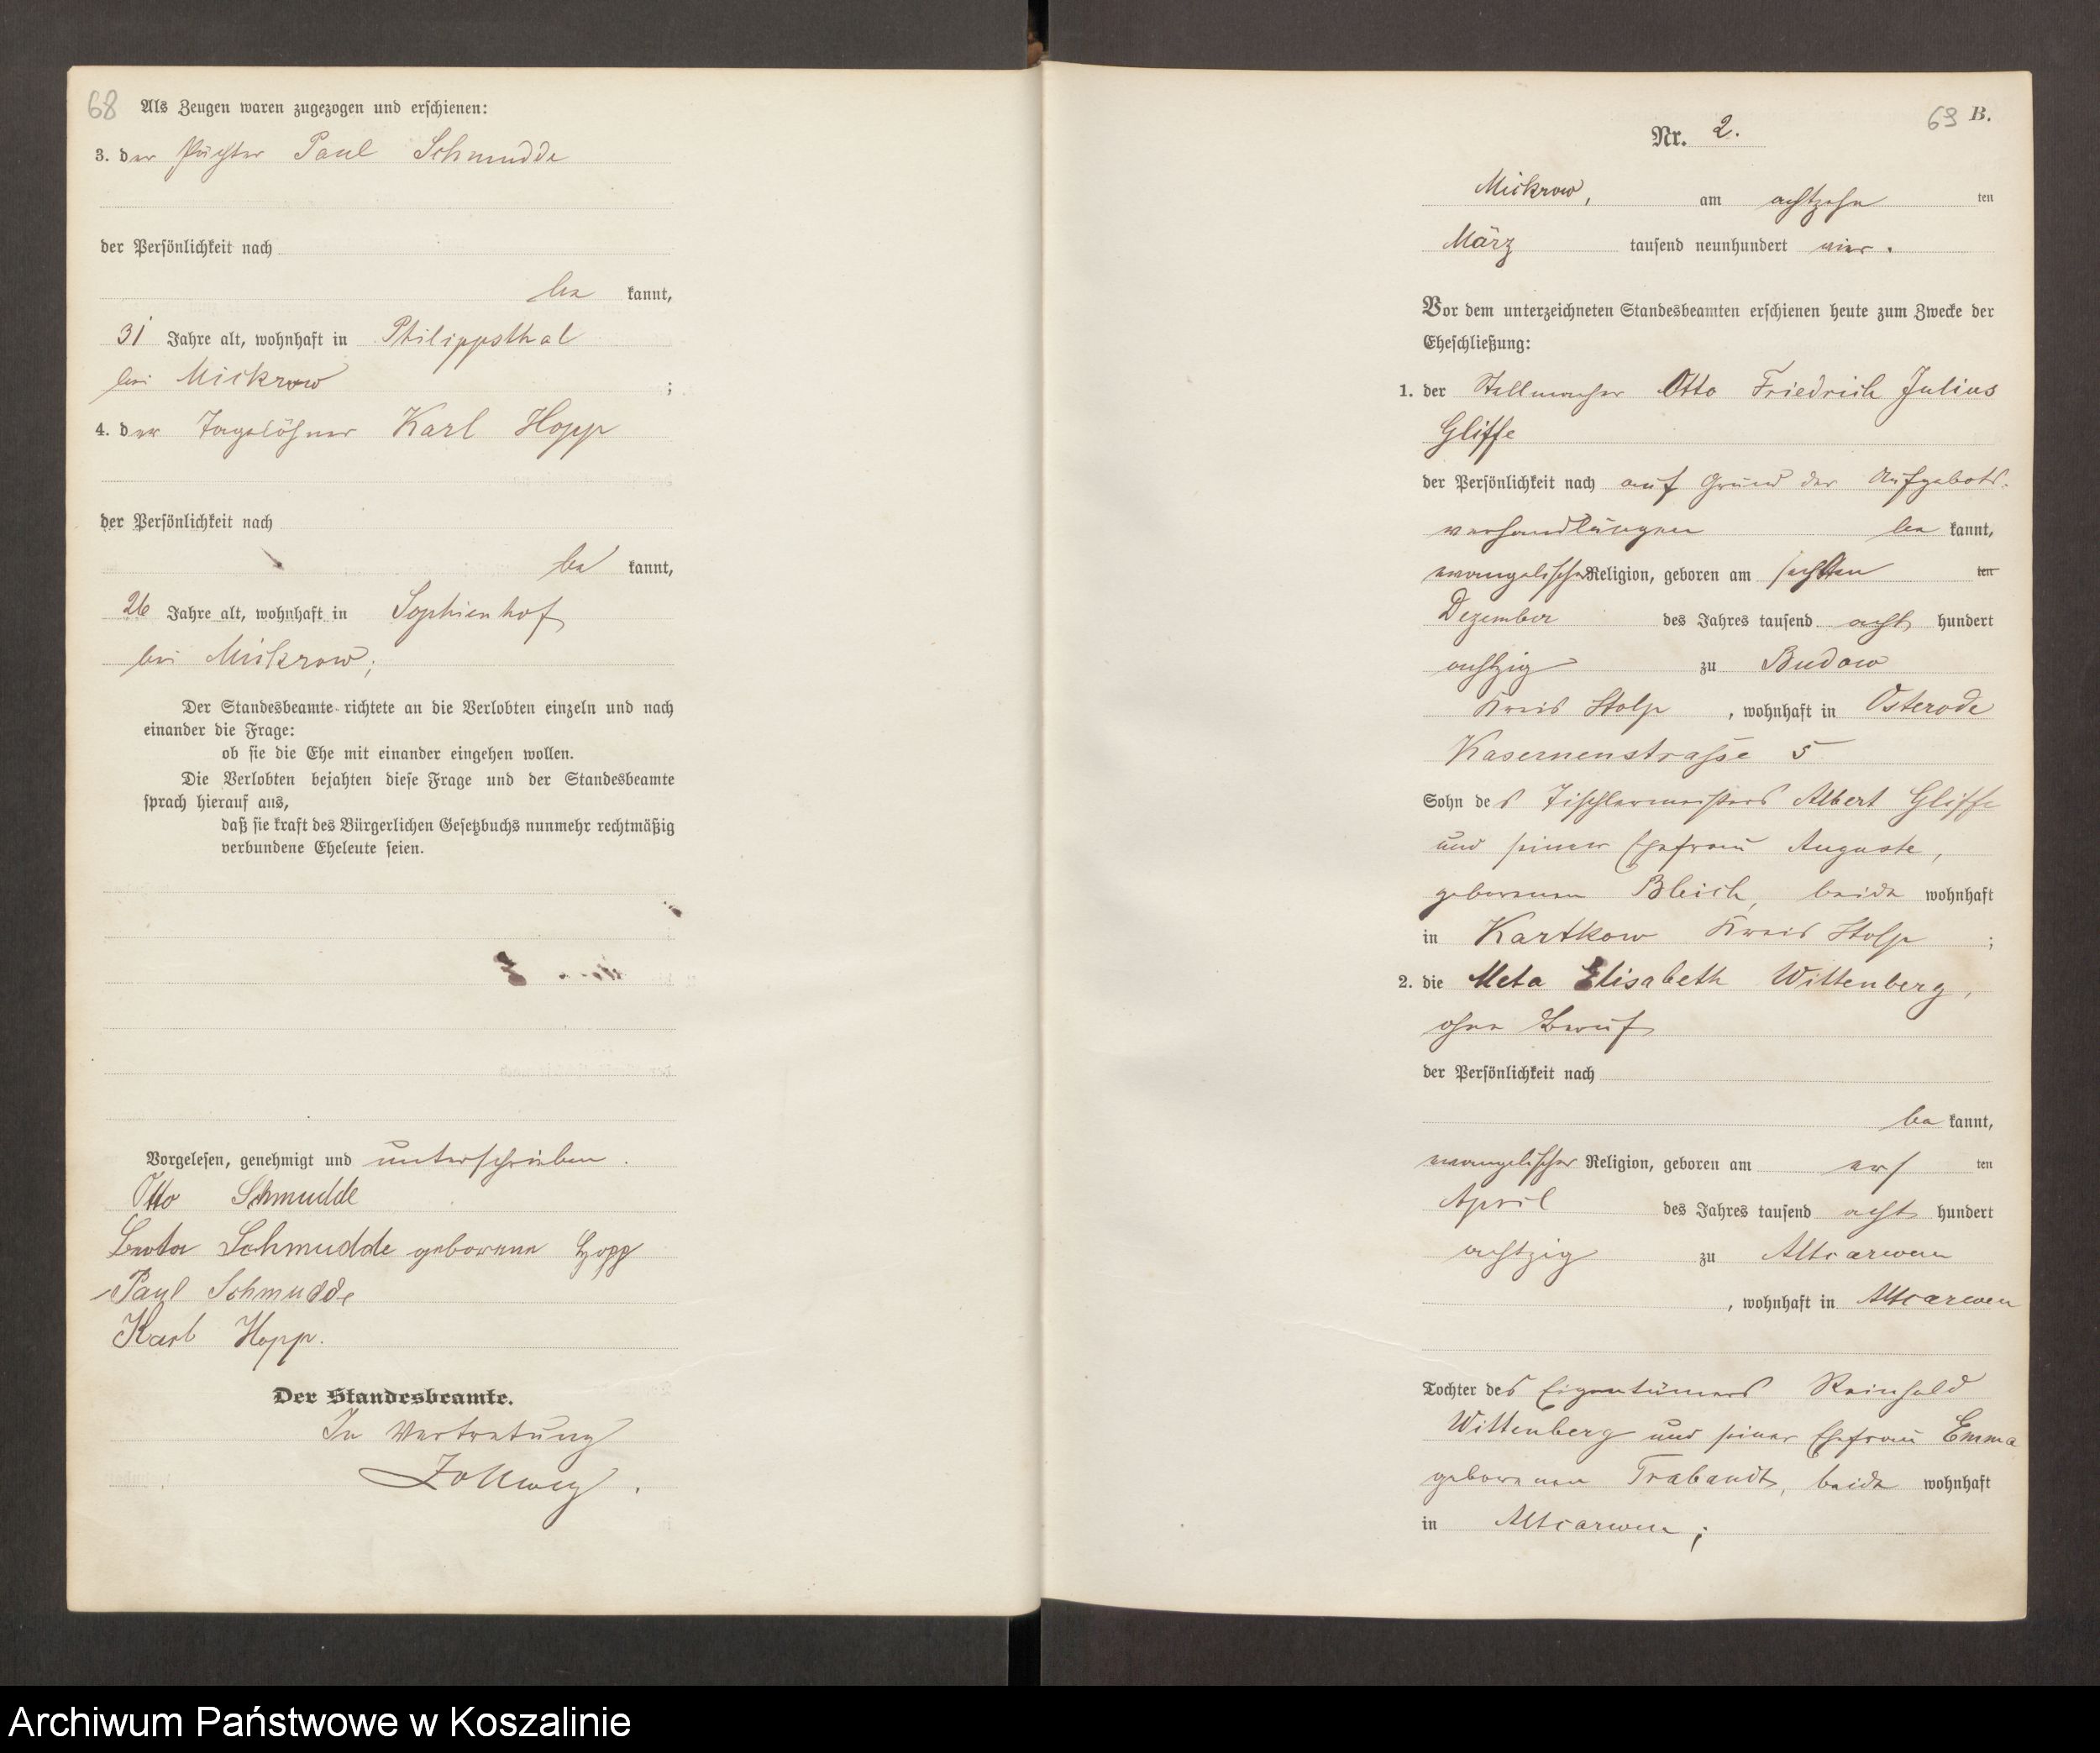 68 Als Zeugen waren zugezogen und erschienen:
3. der Pächter Paul Schmudde
der Persönlichkeit nach
be kannt,
31 Jahre alt, wohnhaft in Philippsthal
bei Mickrow ;
4. der Tagelöhner Karl Hopp
der Persönlichkeit nach
be kannt,
26 Jahre alt, wohnhaft in Sophienhof
bei Mickrow;
Der Standesbeamte richtete an die Verlobten einzeln und nach
einander die Frage:
ob sie die Ehe mit einander eingehen wollen.
Die Verlobten bejahten diese Frage und der Standesbeamte
sprach hierauf aus,
daß sie kraft des Bürgerlichen Gesetzbuchs nunmehr rechtmäßig
verbundene Eheleute seien.
Vorgelesen, genehmigt und unterschrieben.
Otto Schmudde
Schmudde geborene Hopp
Paul Schmudde
Karl Hopp.
Der Standesbeamte.
In Vertretung
Zollweg.
69 B.
Nr. 2.
Mickrow, am achtzehn ten
März tausend neunhundert vier.
Vor dem unterzeichneten Standesbeamten erschienen heute zum Zwecke der
Eheschließung:
1. der Stellmacher Otto Friedrich Julius
Gliffe
der Persönlichkeit nach auf Grund der Aufgebots-
verhandlungen be kannt,
evangelischer Religion, geboren am sechsten ten
Dezember des Jahres tausend acht hundert
achtzig zu Budow
Kreis Stolp, wohnhaft in Osterode
Kasernenstrasse 5
Sohn des Tischlermeisters Albert Gliffe
und seiner Ehefrau Auguste,
geborenen Bleich, beide wohnhaft
in Kartkow Kreis Stolp ;
2. die Meta Elisabeth Wittenberg,
ohne Beruf
der Persönlichkeit nach
be kannt,
evangelischer Religion, geboren am ers ten
April des Jahres tausend acht hundert
achtzig zu Altcarwen
, wohnhaft in Altcarwen
Tochter des Eigentümers Reinhold
Wittenberg und seiner Ehefrau Emma
geborenen Trabandt, beide wohnhaft
in Altcarwen;
Archiwum Państwowe w Koszalinie